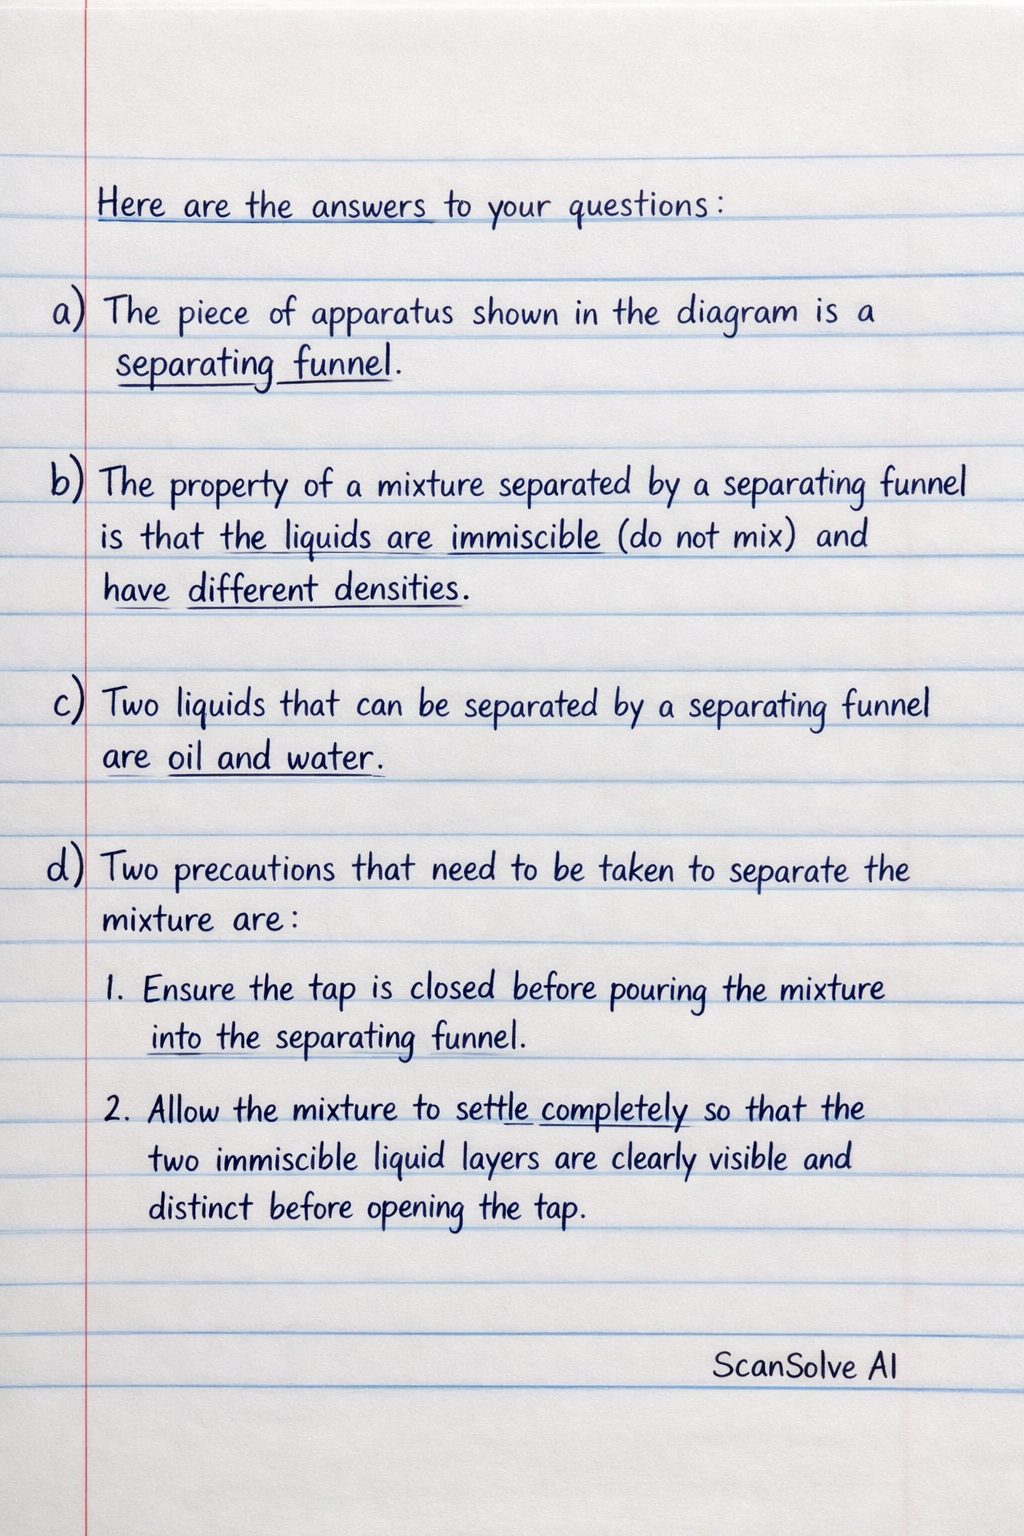 Here are the answers to your questions:
a) The piece of apparatus shown in the diagram is a
separating funnel.
b) The property of a mixture separated by a separating funnel
is that the liquids are immiscible (do not mix) and
have different densities.
c) Two liquids that can be separated by a separating funnel
are oil and water.
d) Two precautions that need to be taken to separate the
mixture are:
1. Ensure the tap is closed before pouring the mixture
into the separating funnel.
2. Allow the mixture to settle completely so that the
two immiscible liquid layers are clearly visible and
distinct before opening the tap.
ScanSolve AI